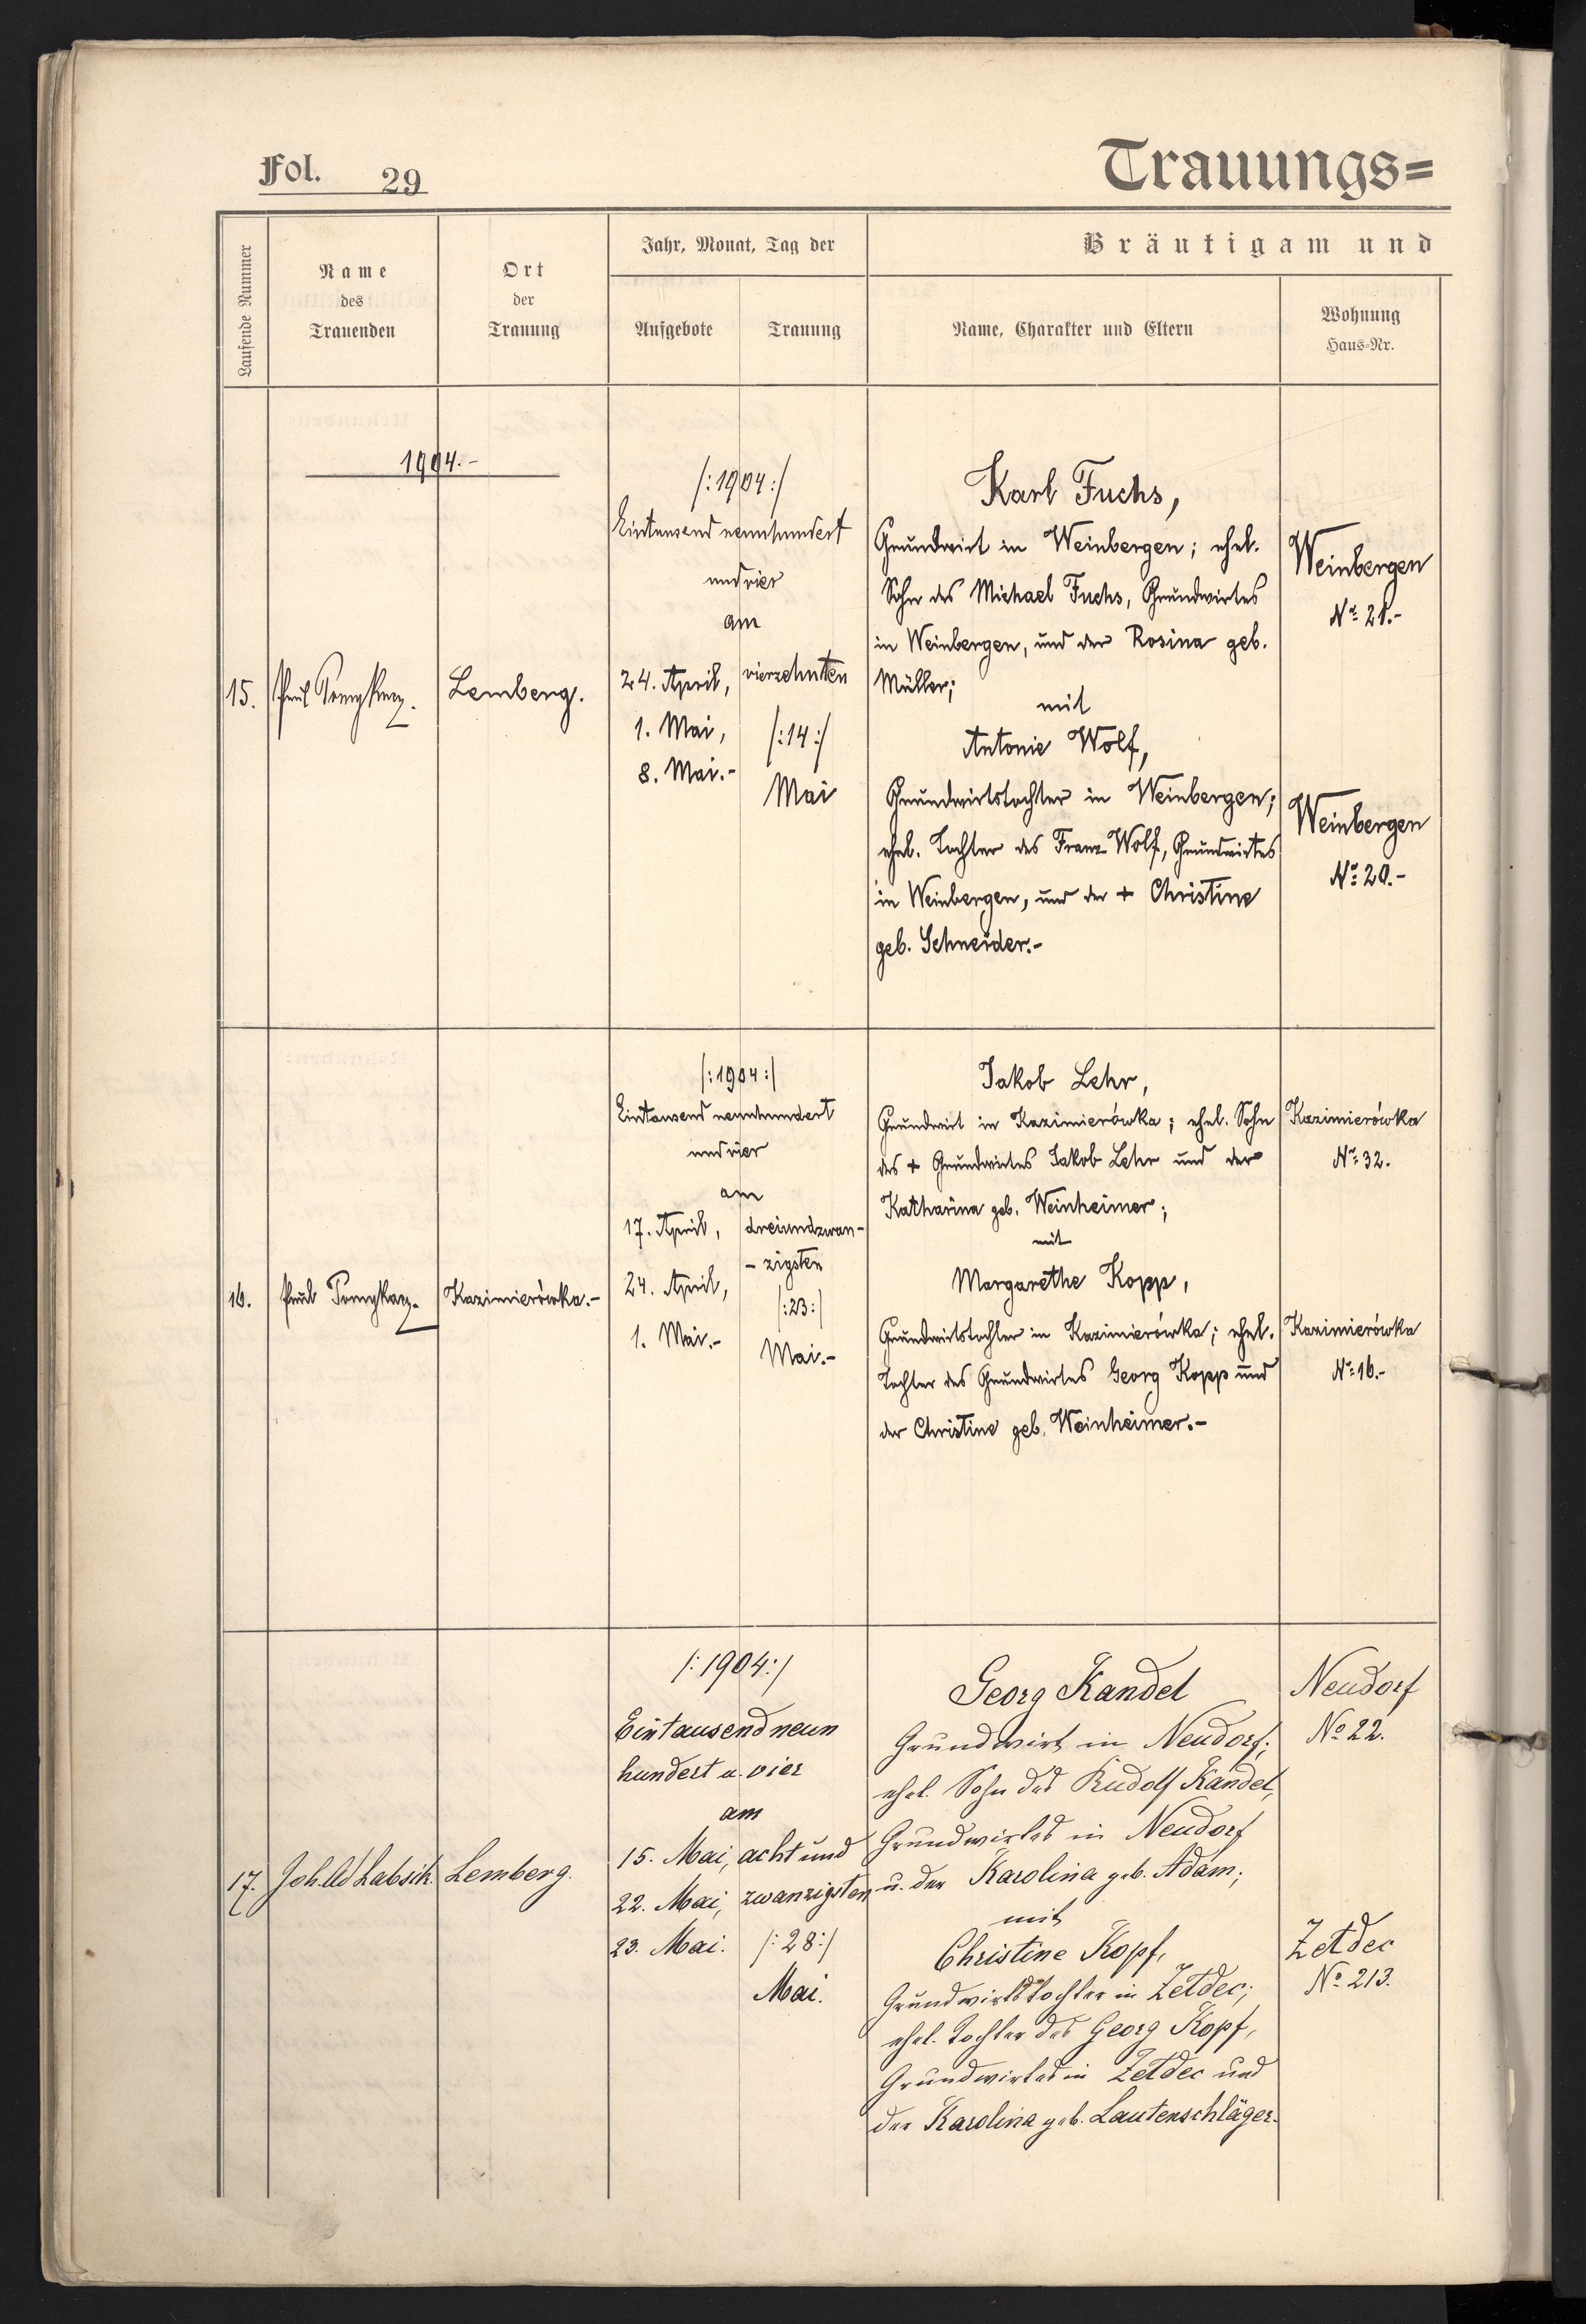 Fol. 29
Trauungs=
Laufende Nummer
Name
des
Trauenden
Ort
der
Trauung
Jahr, Monat, Tag der
Aufgebote
Trauung
Bräutigam und
Name, Charakter und Eltern
Wohnung
Haus-Nr.
1904.-
15.
Lemberg.
/:1904:/
Eintausend neunhundert
und vier
am
24. April,
1. Mai,
8. Mai.-
vierzehnten
/:14:/
Mai
Karl Fuchs,
Grundwirt in Weinbergen; ehel.
Sohn des Michael Fuchs, Grundwirtes
in Weinbergen, und der Rosina geb.
Müller;
mit
Antonie Wolf,
Grundwirtstochter in Weinbergen;
ehel. Tochter des Franz Wolf, Grundwirtes
in Weinbergen, und der + Christine
geb. Schneider.-
Weinbergen
Nr: 21.-
Weinbergen
Nr: 20.-
16.
Kazimierówka.-
/:1904:/
Eintausend neunhundert
und vier
am
17. April,
24. April,
1. Mai.-
dreiundzwan-
-zigsten
/:23:/
Mai.-
Jakob Lehr,
Grundwirt in Kazimierówka; ehel. Sohn
des + Grundwirtes Jakob Lehr und der
Katharina geb. Weinheimer;
mit
Margarethe Kopp,
Grundwirtstochter in Kazimierówka; ehel.
Tochter des Grundwirtes Georg Kopp und
der Christine geb. Weinheimer.-
Kazimierówka
Nr: 32.
Kazimierówka
Nr: 16.-
17.
Joh. Ad Labsik.
Lemberg.
/:1904:/
Eintausend neun
hundert u. vier
am
15. Mai,
22. Mai,
23. Mai.
acht und
zwanzigsten
/:28:/
Mai.
Georg Kandel
Grundwirt in Neudorf;
ehel. Sohn des Rudolf Kandel,
Grundwirtes in Neudorf
u. der Karolina geb. Adam;
mit
Christine Kopf,
Grundwirtstochter in Zetdec;
ehel. Tochter des Georg Kopf,
Grundwirtes in Zetdec und
der Karolina geb. Lautenschläger.
Neudorf
No 22.
Zetdec
No 213.